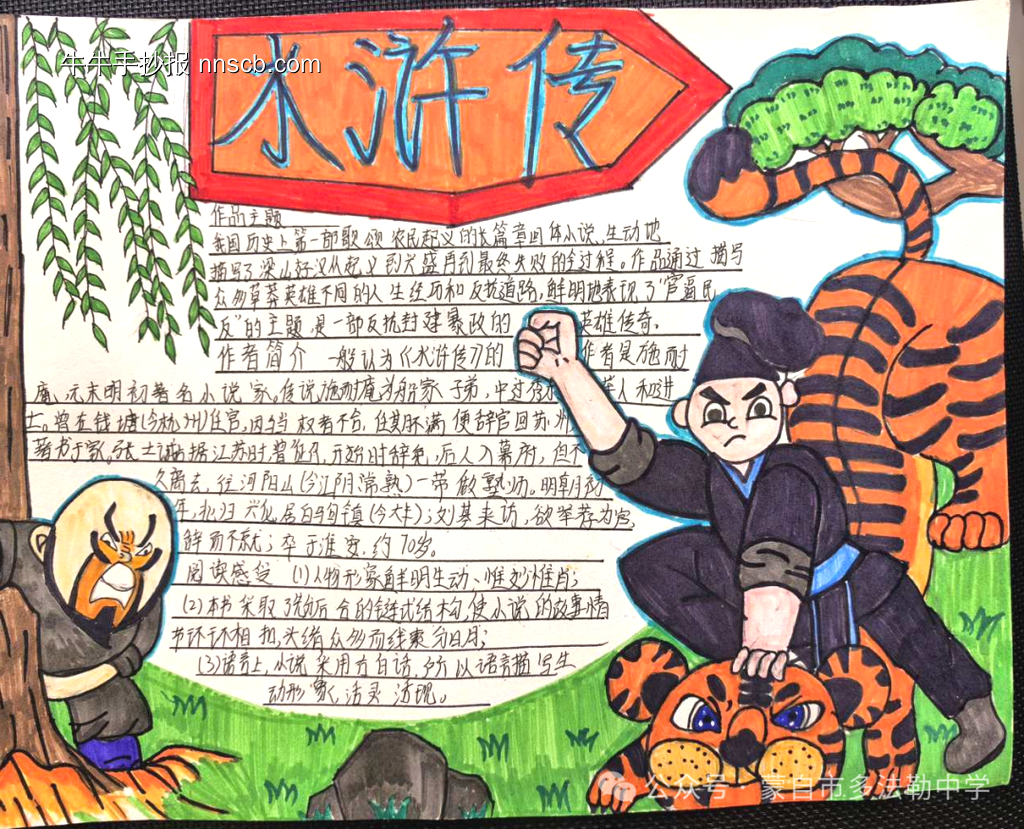 牛牛手抄报 nnscb.com
水浒传
作品主题
我国历史上第一部歌颂农民起义的长篇章回体小说、生动地
描写了梁山好汉从起义到兴盛再到最终失败的全过程。作品通过描写
众多草莽英雄不同的人生经历和反抗道路,鲜明地表现了"官逼民
反"的主题,是一部反抗封建暴政的 英雄传奇。
作者简介 一般认为《水浒传》的 作者是施耐
庵、元末明初著名小说家。传说施耐庵为船家子弟,中过秀 人和进
士。曾在钱塘(今杭州)任官,因与当权者不合,任期满便辞官回苏州
著书于家,张士诚据江苏时曾 开始时辞免,后入幕府,但不
久离去,往河阳山(今江阴常熟)一带做塾师。明朝
年,北归兴化,居白驹镇(今大丰);刘基来访,欲举荐为官
辞而不就;卒于淮安,约70岁。
阅读感受 (1)人物形象鲜明生动、惟妙惟肖;
(2)本书采取了先 后合的链式结构,使小说的故事情
节环环相扣,头绪众多而线索分明;
(3)语言上,小说采用古白话,予以语言描写生
动形象,活灵活现。
公众号·蒙自市多法勒中学